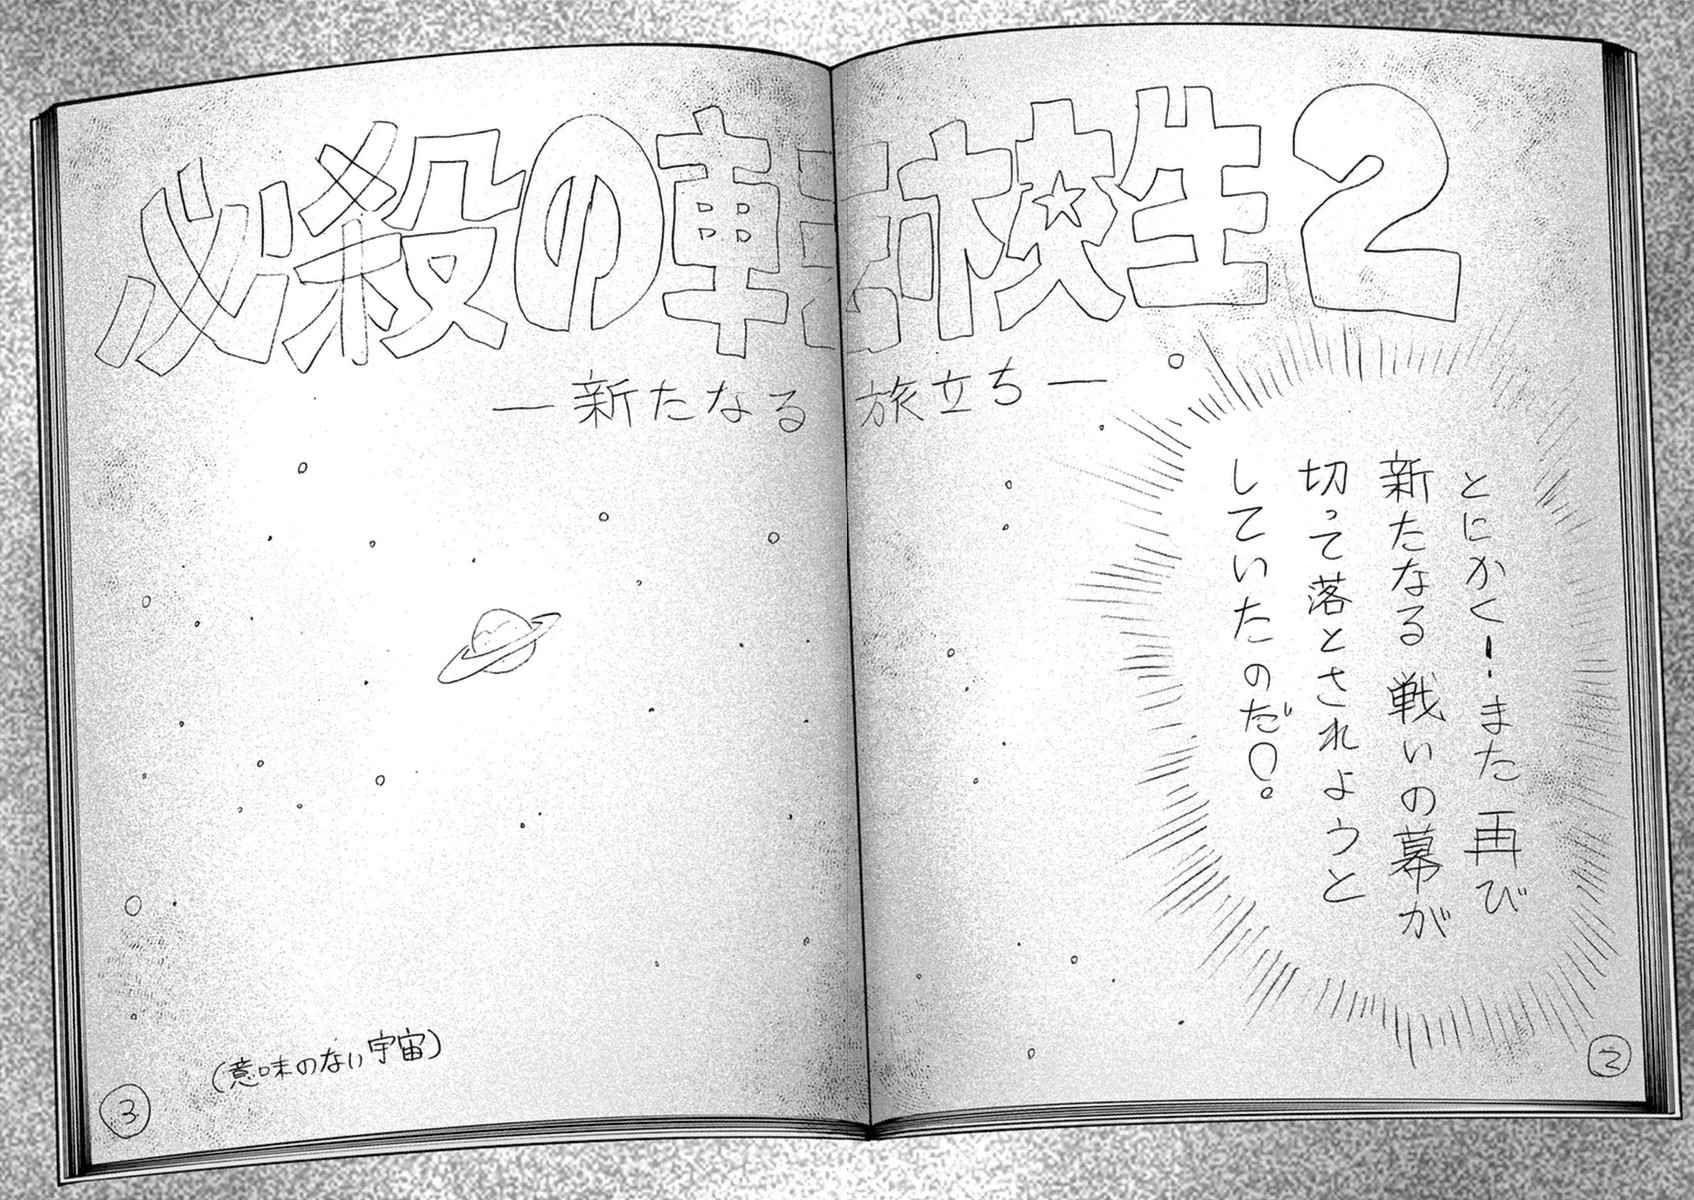 必殺の転校生2
―新たなる旅立ち―
とにかく!また再び
新たなる戦いの幕が
切って落とされようと
していたのだ〇。
2
(意味のない宇宙)
3